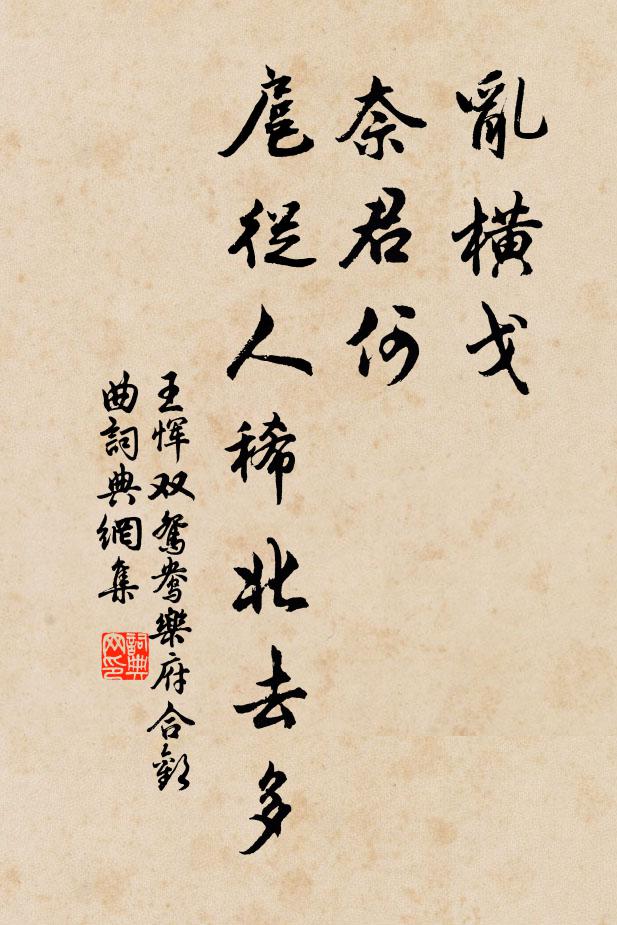 亂橫戈
奈君何
扈從人稀北去多
王惲双鴛鴦樂府合歡
曲詞典網集
詞典
网印